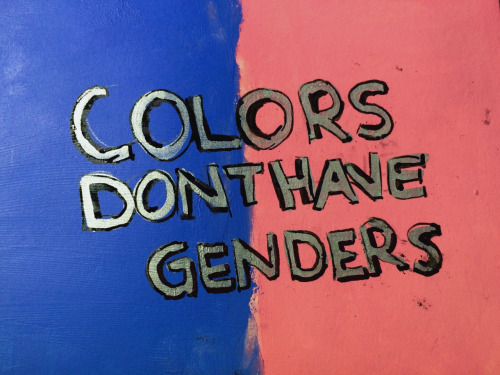 COLORS
DONT HAVE
GENDERS